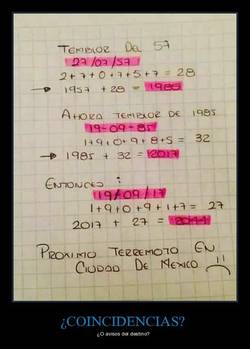 TEMBLOR DEL 57
27/07/57
2+7+0+7+5+7 = 28
→ 1957 + 28 = 1985
AHORA TEMBLOR DE 1985
19-09-85
1+9+0+9+8+5 = 32
→ 1985 + 32 = 2017
ENTONCES :
19/09/17
1+9+0+9+1+7 = 27
2017 + 27 = 2044
PROXIMO TERREMOTO EN
CIUDAD DE MEXICO
¿COINCIDENCIAS?
¿O avisos del destino?